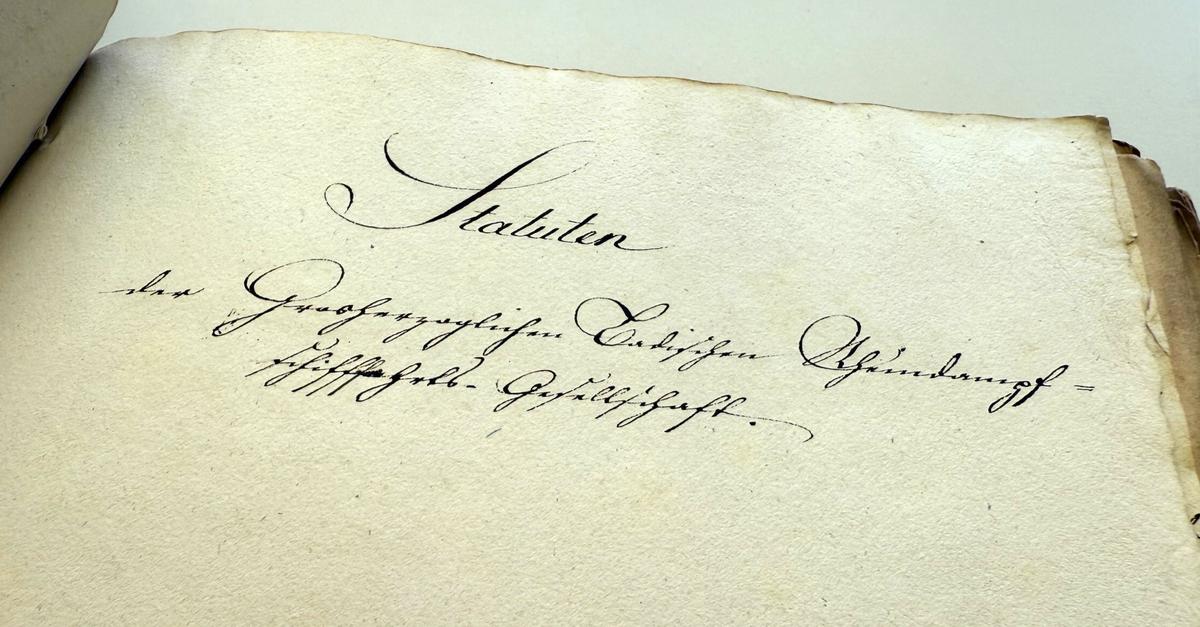 Statuten
der Grosherzoglichen Badischen Rheindampf=
schifffahrts- Gesellschaft.